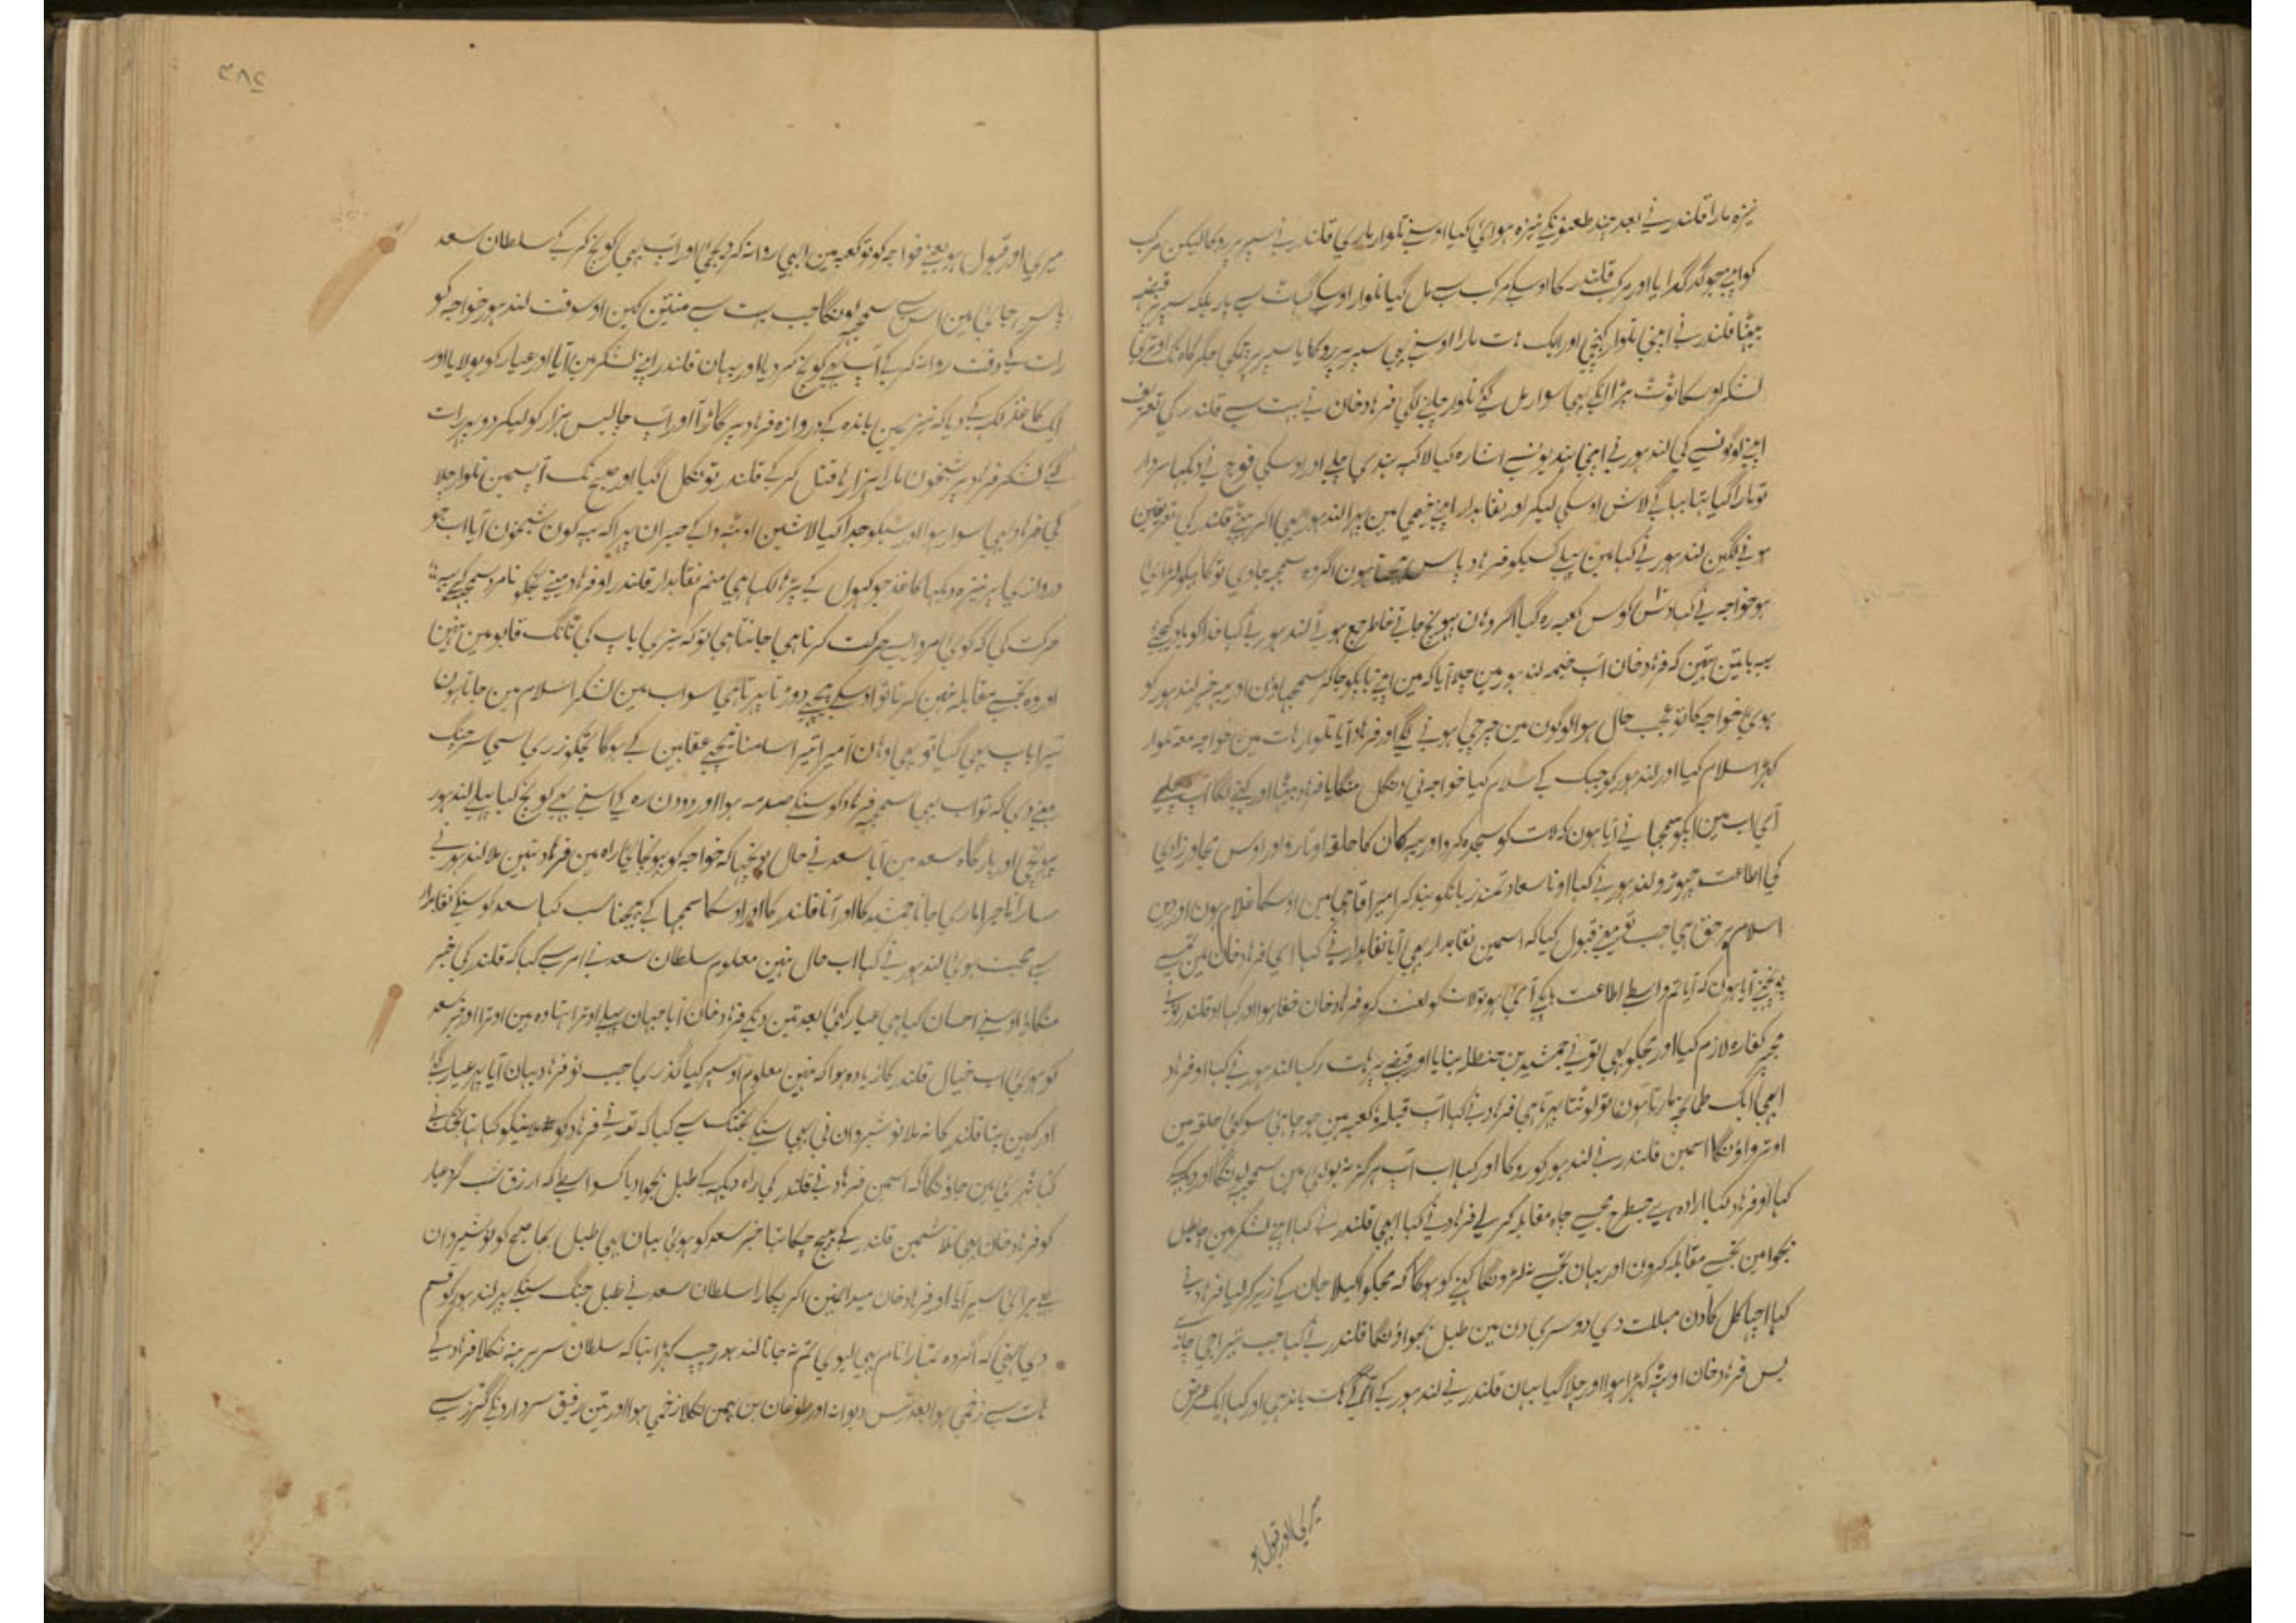 نیزہ مارا قلندر نے بعد چند طعنونکے نیزہ ہوائی کیا اوسنے تلوار ماری قلندر نے سپر پر روکا لیکن مرکب
کو اپنے جو گدگدایا اور مرکب قلندر کا اوسکے مرکب سے مل گیا تلوار اوسکے ہات سے پار بلکہ سپر پر قبضہ
بیٹھا قلندر نے اپنی تلوار کہنچی اور ایک ہات مارا اوسنے بہی سپر پر روکا یا سپر پر تہکی جگر گاہ تک اوتری
لشکر اوسکا ٹوٹ پڑا انکے بہی سوار مل گئے تلوار چلنے لگی فرہاد خان نے بہت سے قلندر کی تعریف
اپنے لوگونسے کی لندہور نے اپنی ہندیونسے اشارہ کیا لاکہہ ہندی چلے اور اوسکی فوج نے دیکہا سردار
تو مارا گیا تہا بہاگے لاش اوسکی لیکر اور نقابدار اپنے خیمی مین پہرا لندہور بہی اکر بیٹھے قلندر کی تعریفین
ہونے لگین لندہور نے کہا مین پہلے کسیکو فرہاد پاس بہیجتا ہون اگر وہ سمجہہ جاوی تو کاہیکو لڑائی
ہو خواجہ نے کہا دش کوس کعبہ رہ گیا اگر وہان پہونچ جاتے خاطر جمع ہوتے لندہور نے کہا خدا کو یاد کیجئے
یہہ باتین تہین کہ فرہاد خان اپ خیمہ لندہور مین چلا آیا کہ مین اپنے باپکو جاکر سمجہاؤن اور یہہ خبر لندہور کو
ہوئی خواجہ کا تو عجب حال ہوا لوگون مین چرچی ہونے لگے اور فرہاد آیا تلوار ہات مین خواجہ معہ تلوار
کہڑا سلام کیا اور لندہور کو جہک کے سلام کیا خواجہ نی دنگل منگایا فرہاد بیٹہا اور کہنے لگا اپ چلے
آئی اب مین اپکو سمجہانے آیا ہون کہ لات کو سجدہ کرو اور یہہ کان کا حلقہ اوتارو اور اوس تجاور زادی
کی اطاعت چہوڑو لندہور نے کہا او نا سعادتمند زبانکو بند کر امیر آقا ہی مین اوسکا غلام ہون اور دین
اسلام پر حق ہی جب تو مینے قبول کیا کہ اسمین نقابدار بہی آیا نقابدار نے کہا ای فرہاد خان مین تجہسے
پوچہنے آیا ہون کہ آیا تم واسطے اطاعت باپکے آئی ہو تو لات کو لعنت کرو فرہاد خان خفا ہوا اور کہا او قلندر تونے
مجہپر کفارہ لازم کیا اور مجکو بہی تونے جمشید بن حنظل بنایا اور قبضے پر ہات رکہا لندہور نے کہا او فرہاد
ابہی ایک طمانچہ مارتا ہون تو لوٹتا پہرتا ہی فرہاد نے کہا آپ قبلہ و کعبہ ہین جو چاہئے سو کہئے حلقہ مین
اوترواؤنگا اسمین قلندر نے لندہور کو روکا اور کہا اب آپ ہرگز نہ بولئی مین سمجہہ لونگا اور دیکہے
کہا او فرہاد کیا ارادہ ہے جسطرح مجسے چاہ مقابلہ کر لے فرہاد نے کہا ابہی قلندر نے کہا اپنے لشکر مین جا طبل
بجوا مین تجسے مقابلہ کرون اور یہان تجسے نہ لڑونگا کہنے کو ہوگا کہ مجکو اکیلا جان کے زیر کر لیا فرہاد نے
کہا اچہا کل کا دن مہلت دی دوسری دن مین طبل بجواؤنگا قلندر نے کہا جب تیرا جی چاہے
بس فرہاد خان اوٹہہ کہڑا ہوا اور چلا گیا یہان قلندر نے لندہور کے آگے ہات باندہی اور کہا ایک عرض
میری اور قبول ہو
۳۸۲
میری اور قبول ہو یعنے خواجہ کو تو کعبہ مین ابہی روانہ کر دیجئی اور اپ بہی کوچ کر کے سلطان سعد
پاس جائی مین اس سے سمجہہ لونگا جب بہت سے منتین کہین اوسوقت لندہور خواجہ کو
رات کے وقت روانہ کر کے آپ بہی کوچ کر دیا اور یہان قلندر اپنے لشکر مین آیا اور عیار کو بولایا اور
ایک کاغذ لکہہ کے دیا کہ نیزہ مین باندہ کے دروازہ فرہاد پر گاڑ آ اور اپ چالیس ہزار کو لیکر دو پہر رات
گئے لشکر فرہاد پر شبخون مارا ہزارہا قتل کر کے قلندر تو نکل گیا اور صبح تک آپسمین تلوار چلا
کی فرہاد بہی سوار ہوا اور سبکو جدا کیا لاشین اوٹہوا کے حیران پہرا کہ یہہ کون شبخون آیا اب جو
دروازی پر نیزہ دیکہا کاغذ جو کہول کے پڑہا لکہا ہی منم نقابدار قلندر او فرہاد مینے تجکو نامرد سمجہہ کے یہہ
حرکت کی کہ کوئی مرد ایسے حرکت کرتا ہی جانتا ہی تو کہ تیری باپ کی ٹانگ قابو مین نہین
اور وہ تجسے مقابلہ نہین کرتا تو اوسکے پیچہے دوڑتا پہرتا ہی سو اب مین لشکر اسلام مین جاتا ہون
تیرا باپ بہی گیا تو بہی اوہان آ میرا تیرا سامنا نیچے عقابین کے ہوگا تجکو زری اسی سر جنگ
مینے دی کہ تو اب بہی سمجہہ فرہاد کو سنکے صدمہ ہوا اور دو دن رہ کے اسنے بہی کوچ کیا پہلے لندہور
پہونچی اور بارگاہ سعد مین آیا سعد نے حال پوچہا کہ خواجہ کو پہونچایا راہ مین فرہاد نہین ملا لندہور نے
سارا ماجرا ماری جانا جمشید کا اور آنا قلندر کا اور اوسکا سمجہا کے بہیجنا سب کہا سعد کو سنکے نقابدار
سے محبت ہوئی لندہور نے کہا اب حال نہین معلوم سلطان سعد نے امر سے کہا کہ قلندر کی خبر
منگاؤ اوسنے احسان کیا ہی عیار گئے بعد تین دنکے فرہاد خان آیا جہان پہلے اوترا تہا وہ ہین اوترا اور خبر سعد
کو ہوئی اب خیال قلندر کا زیادہ ہوا کہ نہین معلوم اوسپر کیا گذری جب تو فرہاد یہان آیا پہر عیار گئے
اور کہین پتا قلندر کا نہ ملا نوشیروان نی بہی سنکے بختک سے کہا کہ تونے فرہاد کو ملانیکو کہا تہا بختک نے
کہا شہریار مین جاؤنگا کہ اسمین فرہاد نے قلندر کی راہ دیکہہ کے طبل بجوا دیا کسواسطے کہ ارزق شب گرد عیار
کو فرہاد خان بہی تلاشمین قلندر کے بہیج چکا تہا خبر سعد کو ہوئی یہان بہی طبل بجا صبح کو نوشیروان
بہی برائی سیر آیا اور فرہاد خان میدانمین اکر پکارا سلطان سعد نے طبل جنگ سنکے پہر لندہور کو قسم
دی تہی کہ اگر وہ تمہارا نام بہی لیوی تم نہ جانا لندہور چپ کہڑا تہا کہ سلطان سر برہنہ نکلا فرہاد کے
ہات سے زخمی ہوا بعد دیوانہ اور طوفان بن بہمن نکلا زخمی ہوا اور تین رفیق سردارونکے گرز سے